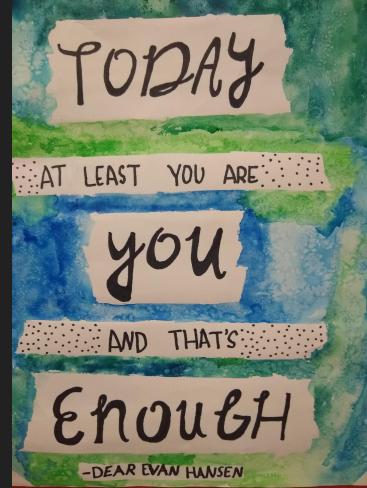 TODAY
AT LEAST YOU ARE
you
AND THAT'S
ENOUGH
-DEAR EVAN HANSEN